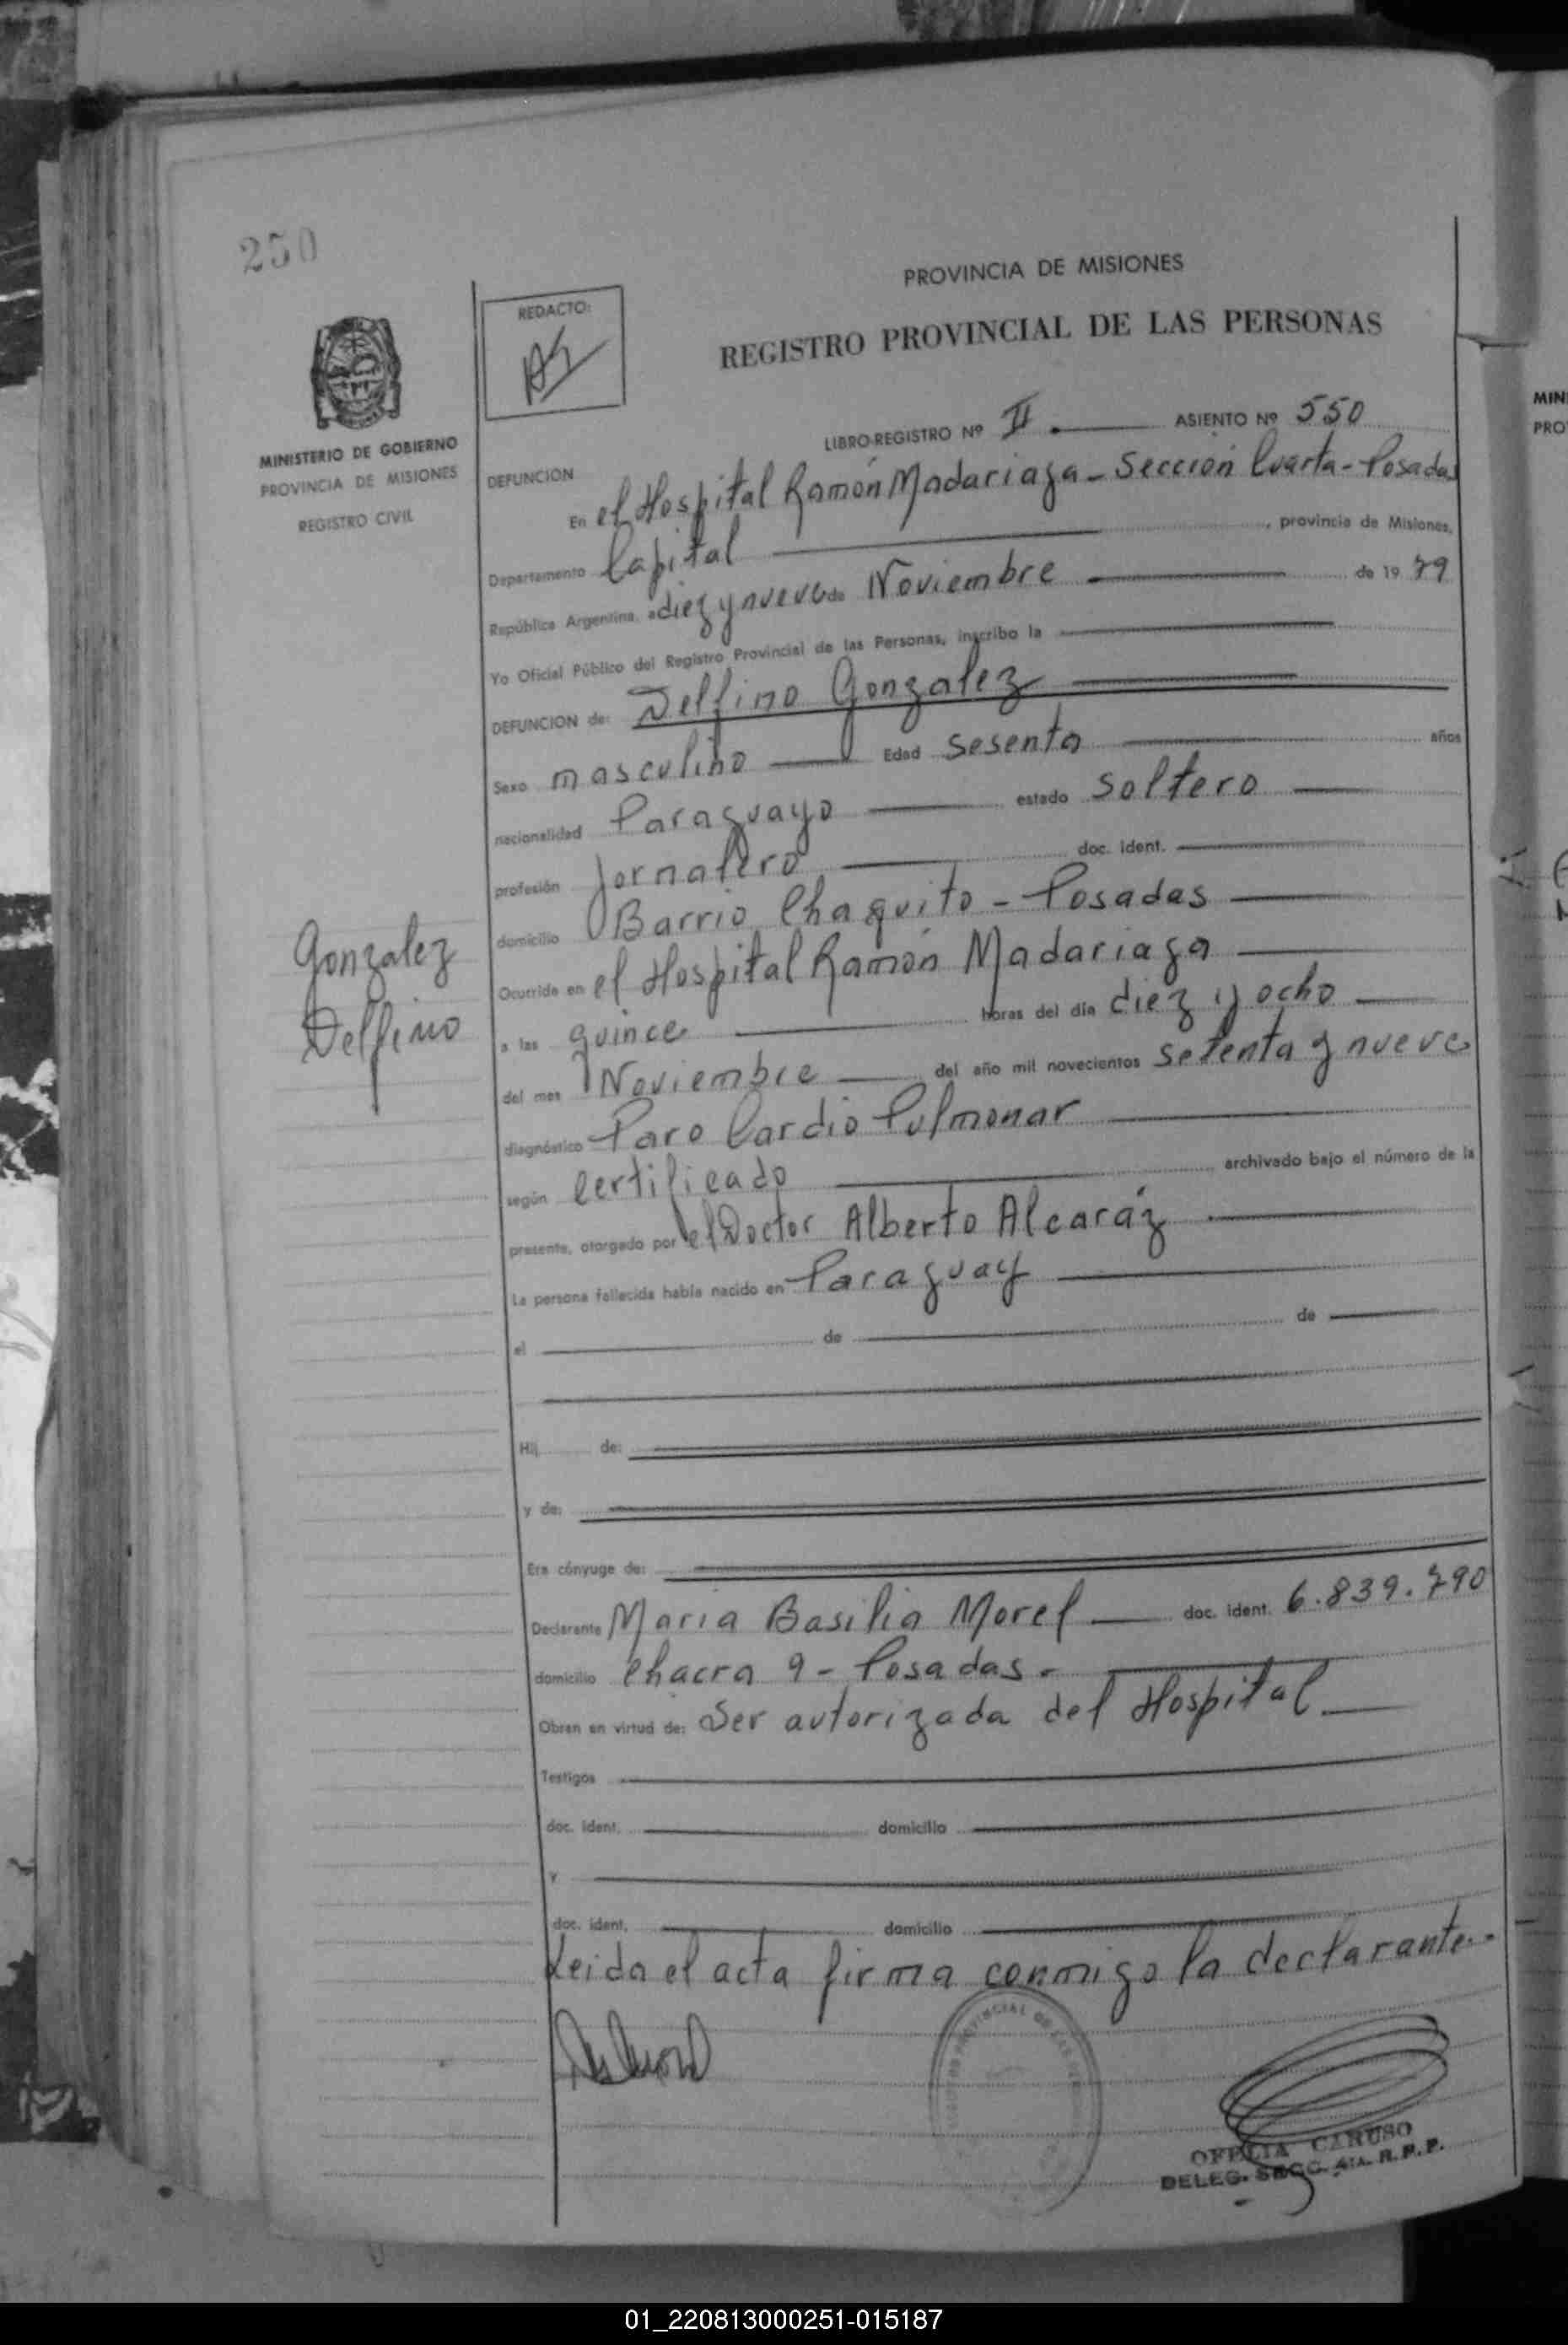 250
PROVINCIA DE MISIONES
REDACTO:
REGISTRO PROVINCIAL DE LAS PERSONAS
MINISTERIO DE GOBIERNO
PROVINCIA DE MISIONES
REGISTRO CIVIL
LIBRO-REGISTRO Nº II. ASIENTO Nº 550
DEFUNCION
En el Hospital Ramón Madariaga - Sección Cuarta - Posadas
Departamento Capital, provincia de Misiones,
República Argentina, a diez y nueve de Noviembre de 19 79
Yo Oficial Público del Registro Provincial de las Personas, inscribo la
DEFUNCION de: Delfino Gonzalez
Sexo masculino Edad sesenta años
nacionalidad Paraguayo estado soltero
profesión Jornalero doc. ident.
domicilio Barrio Chaquito - Posadas
Gonzalez
Delfino
Ocurrida en el Hospital Ramón Madariaga
a las quince horas del día diez y ocho
del mes Noviembre del año mil novecientos setenta y nueve
diagnóstico Paro Cardio Pulmonar
según certificado archivado bajo el número de la
presente, otorgado por el Doctor Alberto Alcaráz
La persona fallecida había nacido en Paraguay
el de de
Hij de:
y de:
Era cónyuge de:
Declarante Maria Basilia Morel doc. ident. 6.839.790
domicilio Chacra 9 - Posadas.
Obran en virtud de: Ser autorizada del Hospital
Testigos
doc. ident. domicilio
Y
doc. ident. domicilio
Leida el acta firma conmigo la declarante.-
OFELIA CARUSO
DELEG. SECC. 4ta. R.P.P.
MIN
PRO
01_220813000251-015187